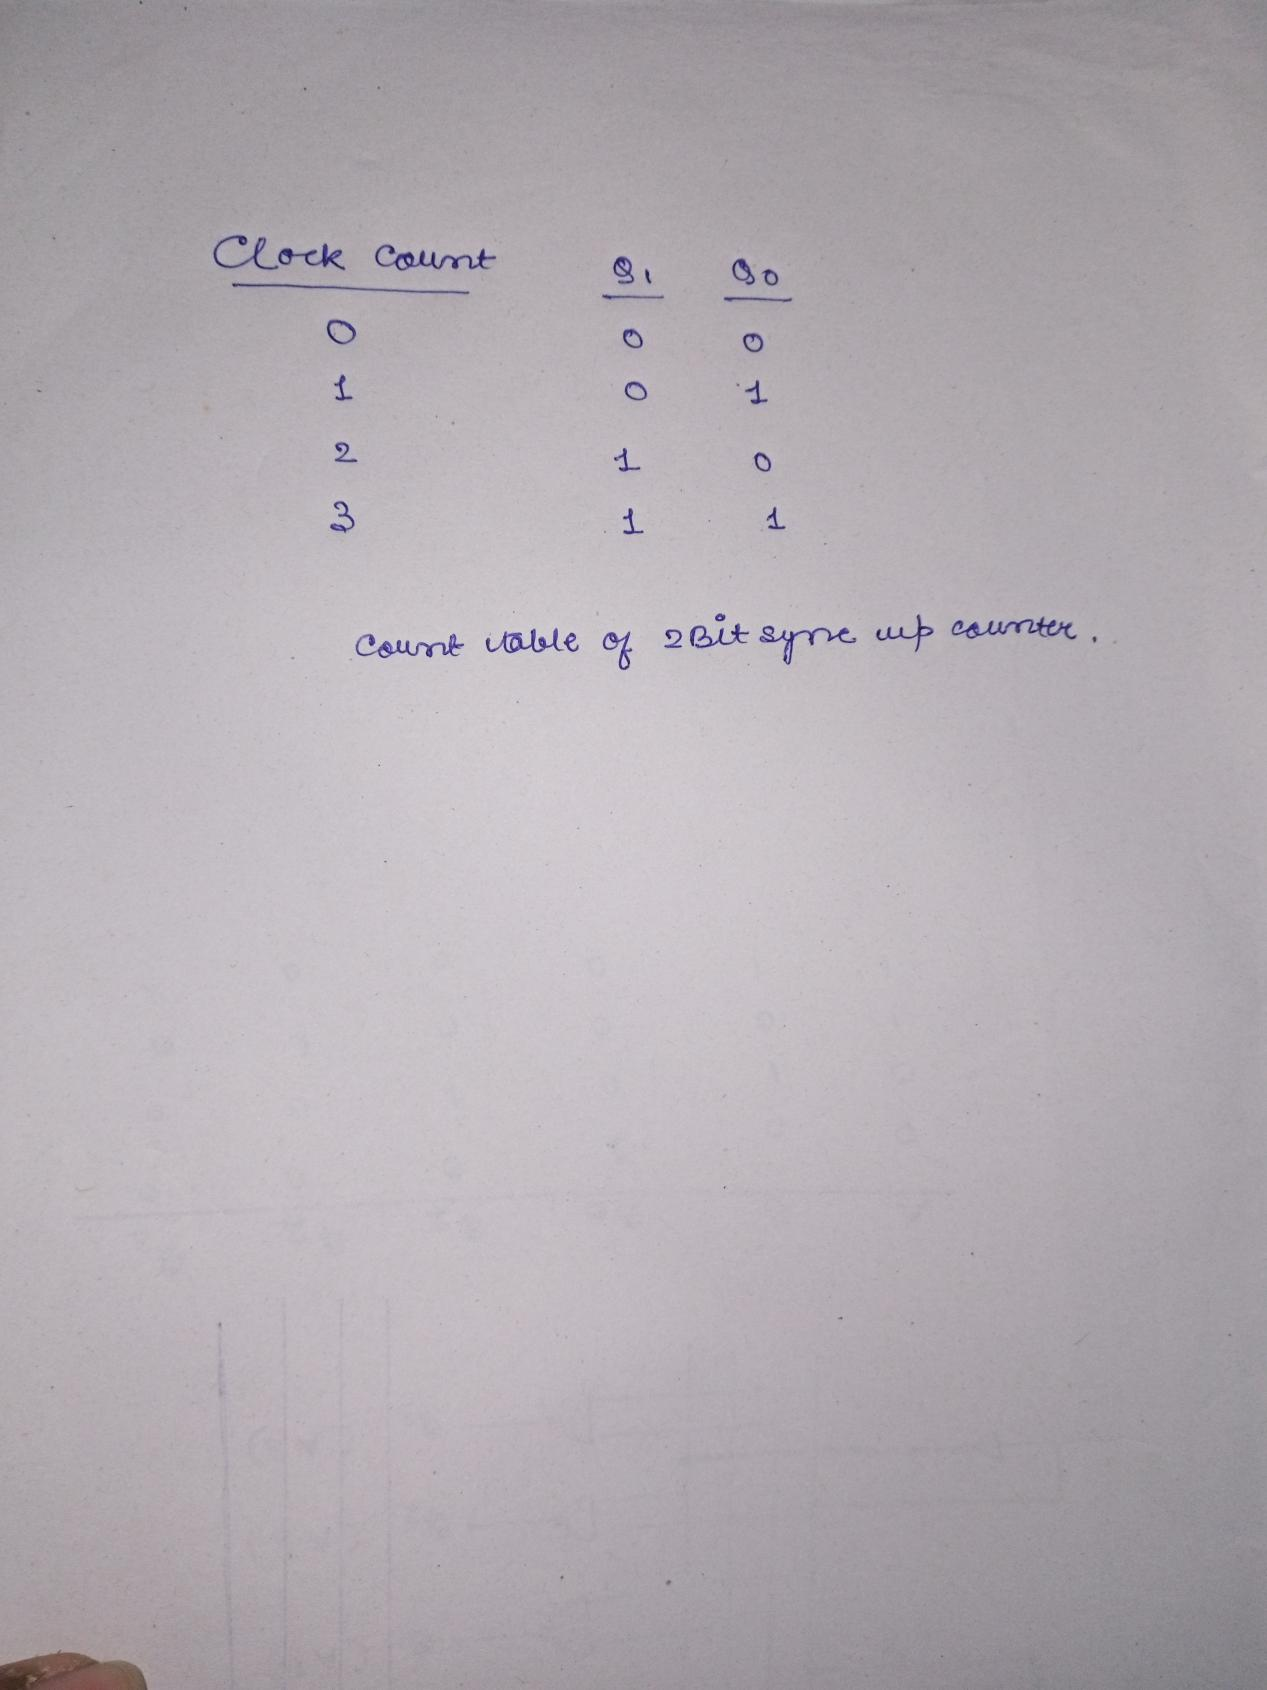 Clock Count Q1 Q0
0 0 0
1 0 1
2 1 0
3 1 1
Count table of 2Bit sync up counter.